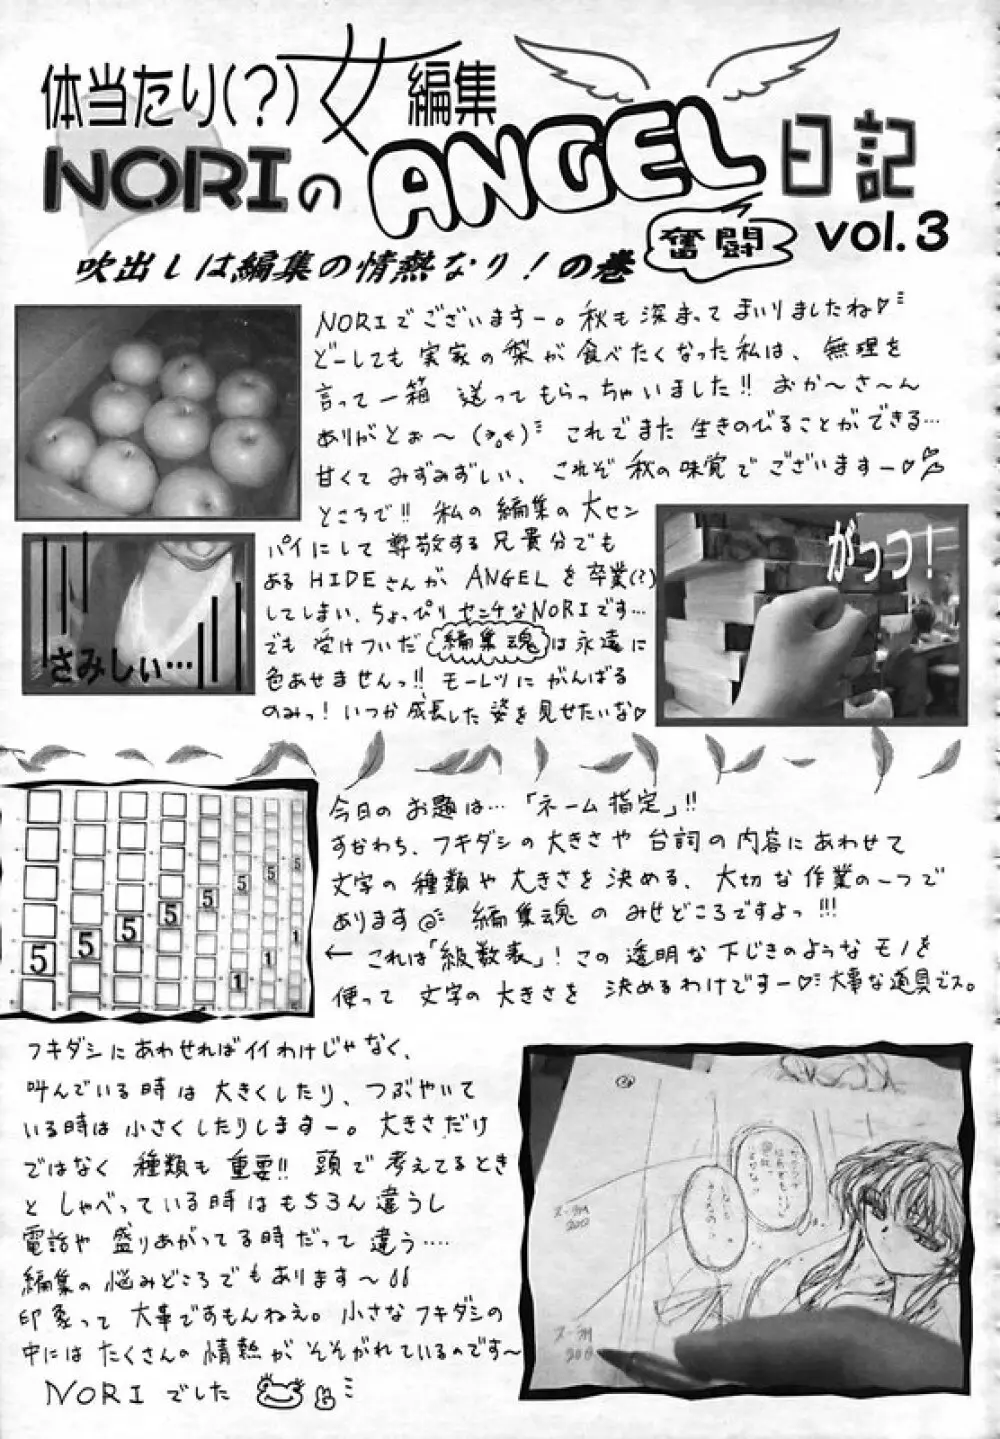 体当たり(?)女編集
NORIのANGEL日記
奮闘
vol.3
吹出しは編集の情熱なり!の巻
NORIでございますー。秋も深まってまいりましたね♡
どーしても実家の梨が食べたくなった私は、無理を
言って一箱送ってもらっちゃいました!! おか〜さ〜ん
ありがとぉ〜 これでまた生きのびることができる…
甘くてみずみずしい、これぞ秋の味覚でございますー♡
ところで!! 私の編集の大セン
パイにして尊敬する兄貴分でも
あるHIDEさんがANGELを卒業(?)
してしまい、ちょっぴりセンチなNORIです…
でも受けついだ編集魂は永遠に
色あせませんっ!! モーレツにがんばる
のみっ! いつか成長した姿を見せたいな♡
さみしぃ…
がっつ!
今日のお題は…「ネーム指定」!!
すなわち、フキダシの大きさや台詞の内容にあわせて
文字の種類や大きさを決める、大切な作業の一つで
あります 編集魂のみせどころですよっ!!!
← これは「級数表」! この透明な下じきのようなモノを
使って文字の大きさを決めるわけですー♡大事な道具でス。
5 5 5 5 5 5 5 5
1 1 1
フキダシにあわせればイイわけじゃなく、
叫んでいる時は大きくしたり、つぶやいて
いる時は小さくしたりしますー。大きさだけ
ではなく種類も重要!! 頭で考えてるとき
としゃべっている時はもちろん違うし
電話や盛りあがってる時だって違う‥‥
編集の悩みどころでもあります〜
印象って大事ですもんねえ。小さなフキダシの
中にはたくさんの情熱がそそがれているのです〜
NORIでした